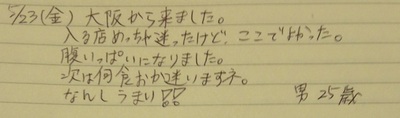 5/23(金) 大阪から来ました。
入る店めっちゃ迷ったけど、ここでよかった。
腹いっぱいになりました。
次は何食おか迷いますネ。
なんしうまい!! 男 25歳